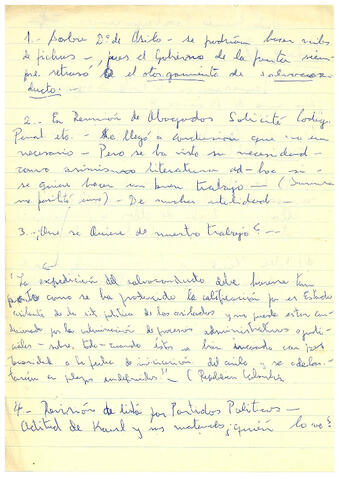 1.- Sobre D° de Asilo - se podrían hacer miles
de fichas -, pues el Gobierno de la Junta siem-
pre retrasó el otorgamiento de salvocon-
ducto.-
2.- En Reunión de Abogados Solicité Codigo
Penal etc. - Se llegó a conclusión que no era
necesario - Pero se ha visto su necesidad -
como asimismo literatura ad-hoc si
se quiere hacer un buen trabajo - (
me facilitó uno) - De mucha utilidad.
3.- ¿Que se quiere de nuestro trabajo? -
"La expedición del salvoconducto debe hacerse tan
pronto como se ha producido la calificación por el Estado
asilante de la política de los asilados y no puede estar con-
dicionado por la culminación de procesos administrativos o judi-
ciales - sobre todo - cuando éstos se han incoado con pos-
terioridad a la fecha de iniciación del asilo y se
en plazos indefinidos." - (
4.- Revisión de lista por Partidos Politicos -
Actitud de y sus materiales ¿quién lo ve?